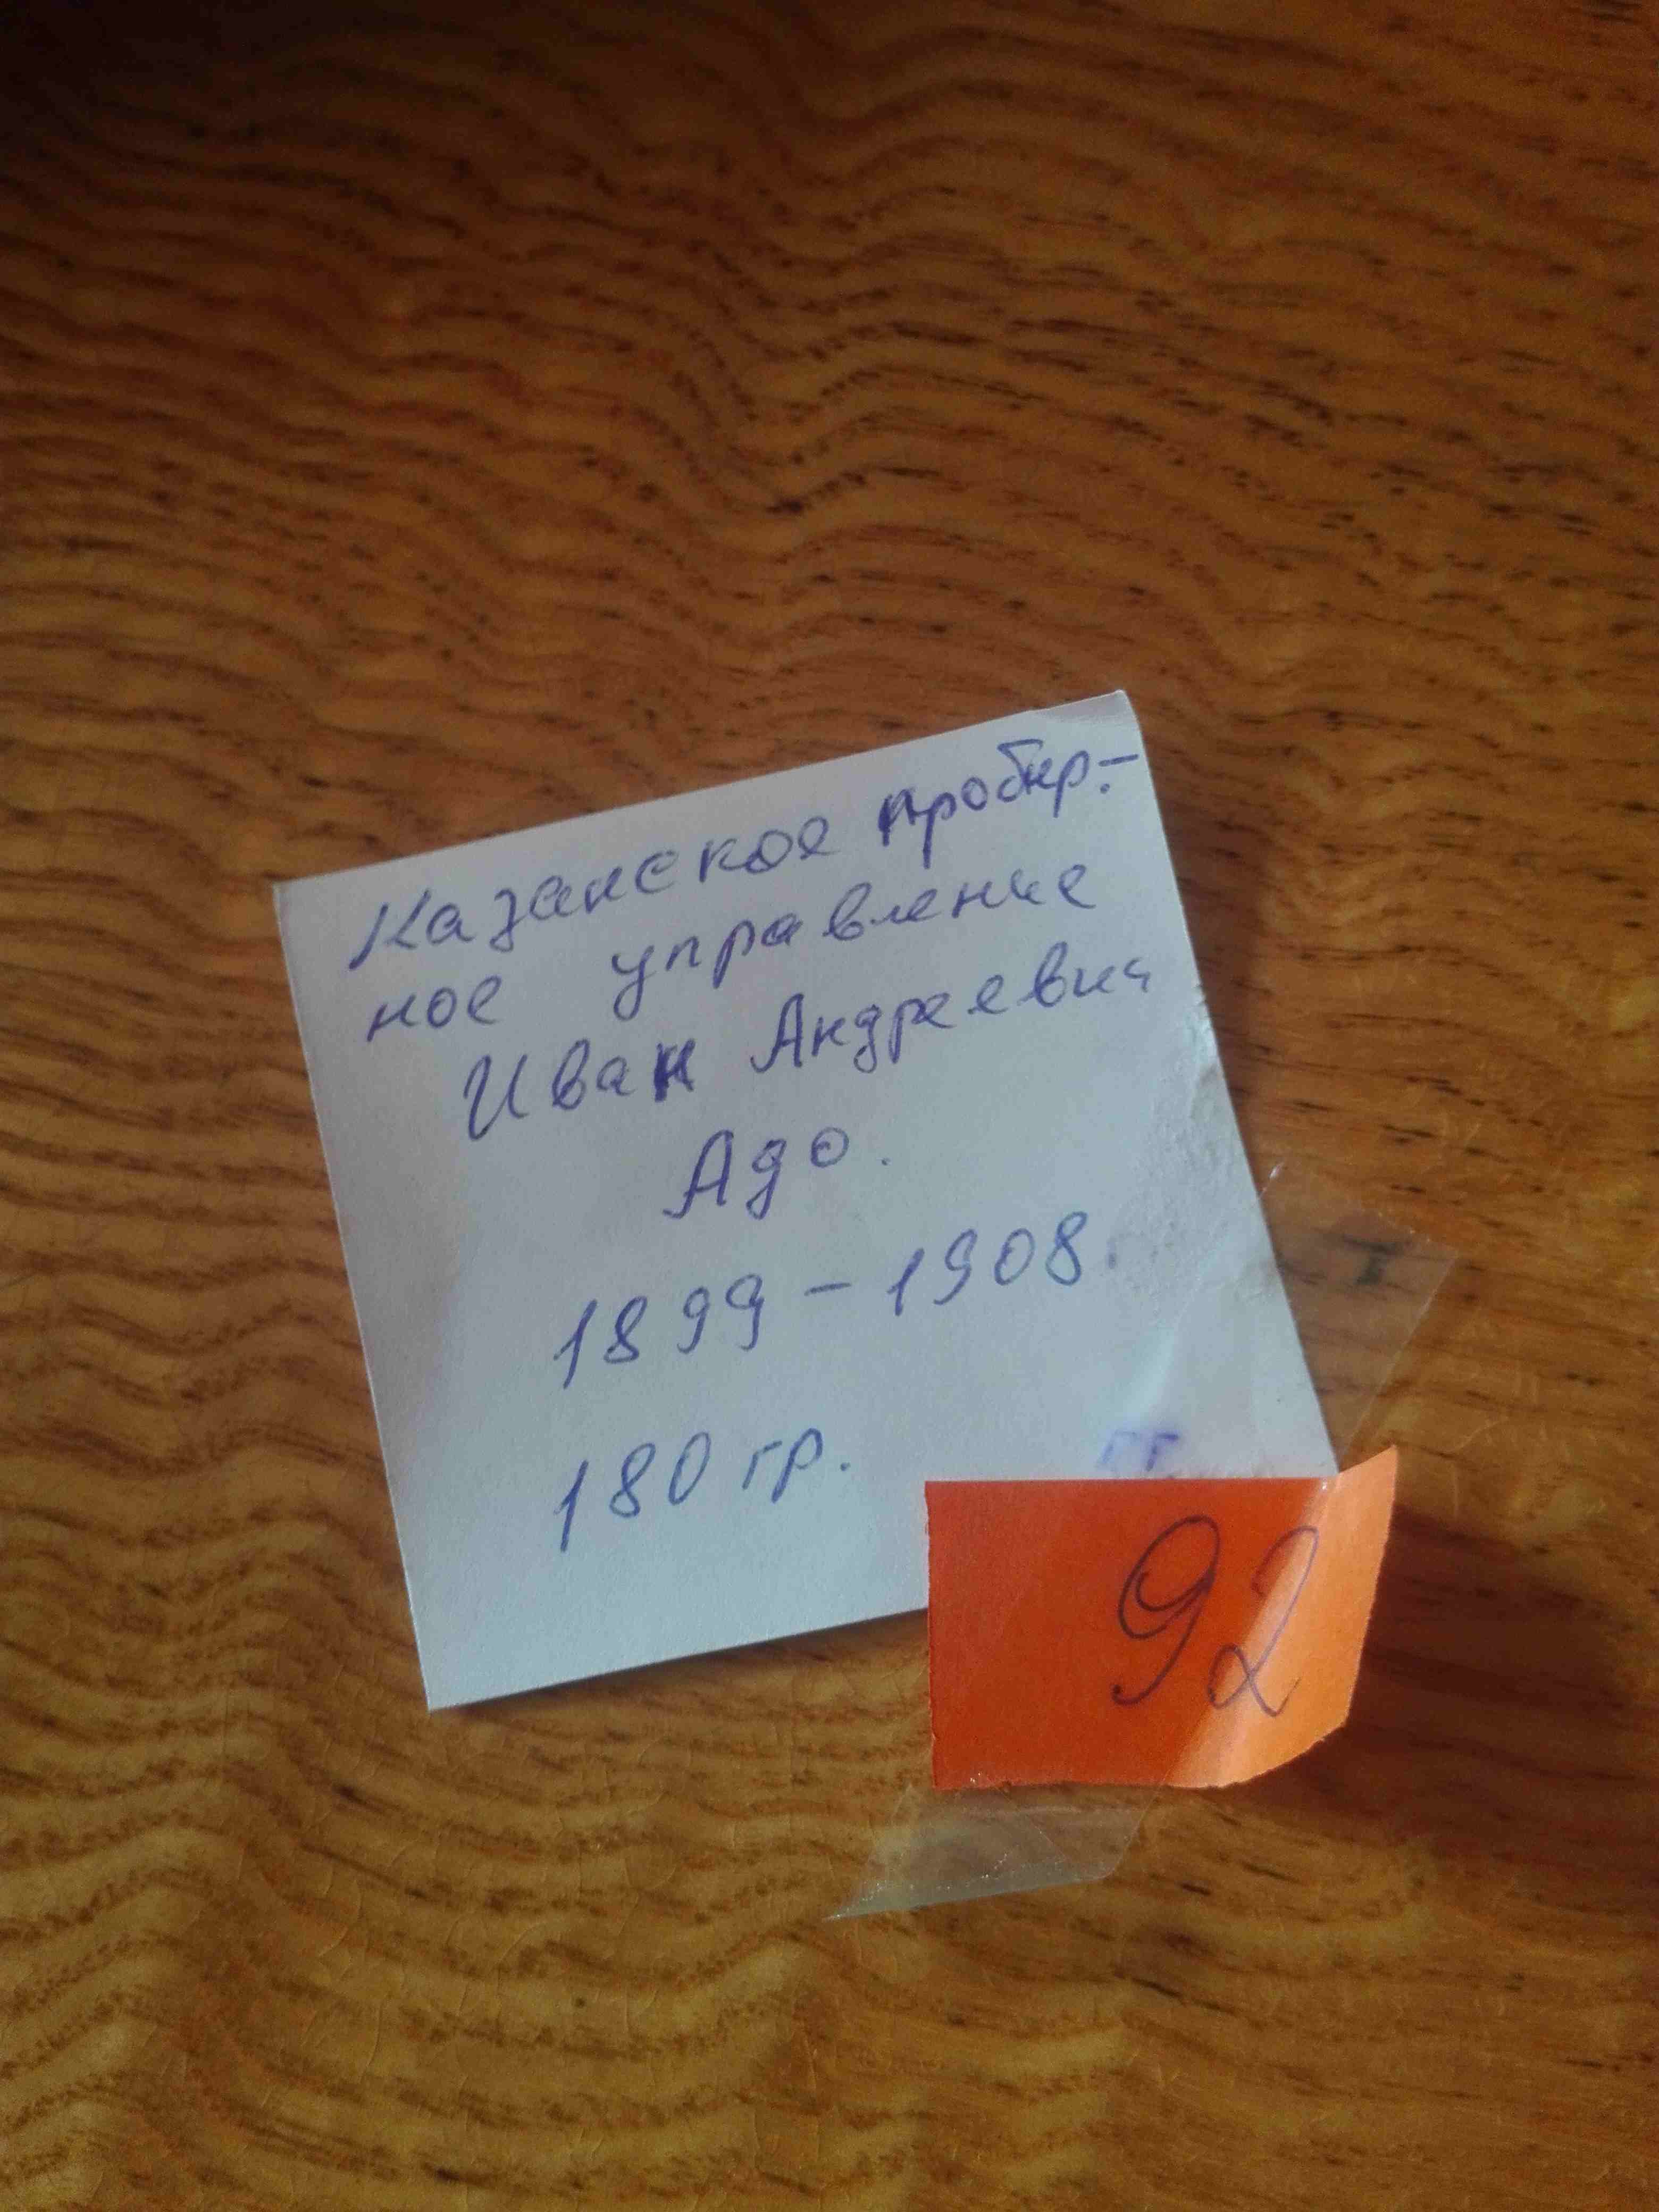 Казанское пробир-
ное управление
Иван Андреевич
Адо.
1899 - 1908.
180 гр.
гг
92